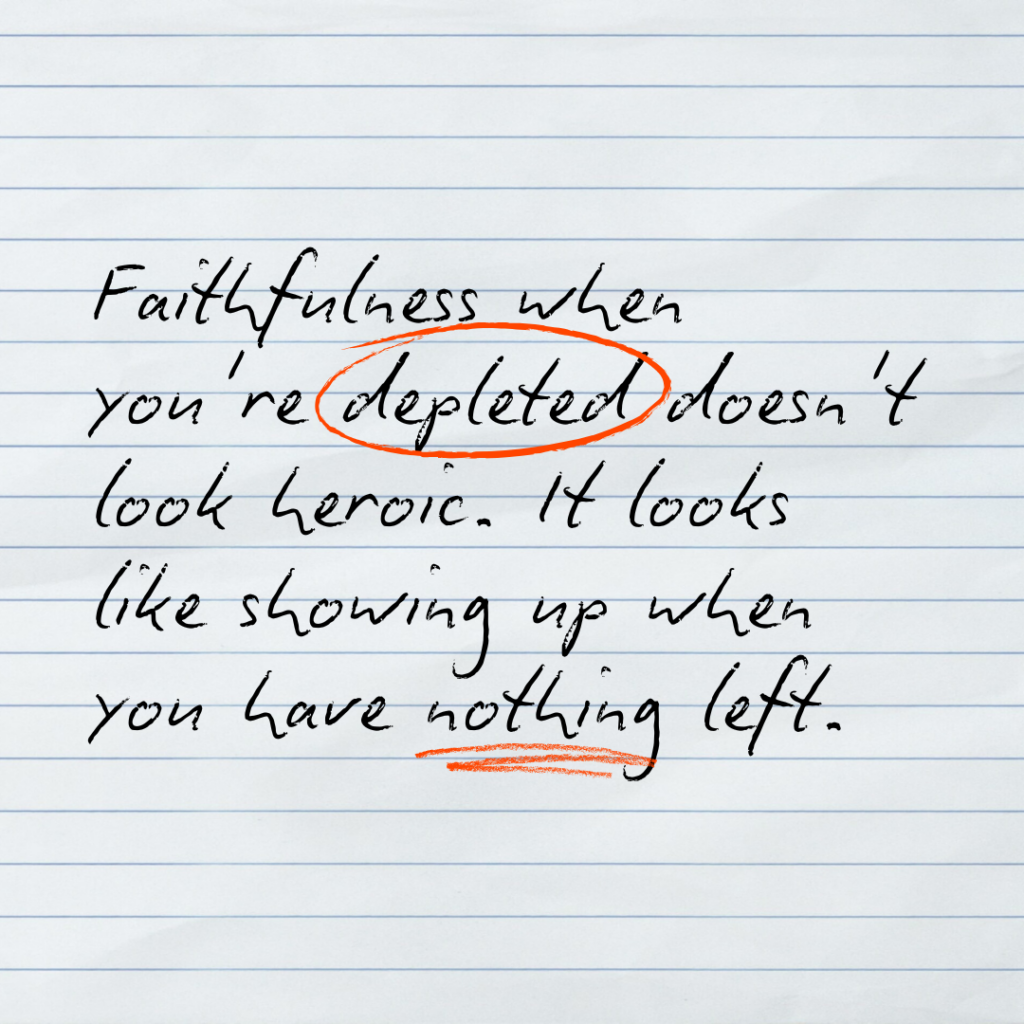 Faithfulness when
you're depleted doesn't
look heroic. It looks
like showing up when
you have nothing left.